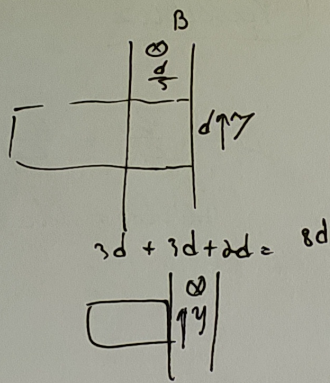 B
⊗
d/5
d↑y
3d + 3d + 2d = 8d
⊗
↑y